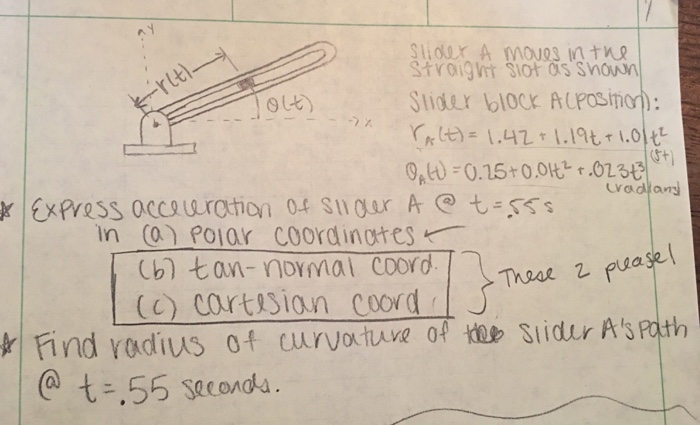 y
r(t)
θ(t)
x
Slider A moves in the
straight slot as shown
Slider block A(position):
r_A(t) = 1.42 + 1.19t + 1.01t²
(ft)
θ_A(t) = 0.25 + 0.01t² + .023t³
(radians)
* Express acceleration of slider A @ t=.55s
in (a) polar coordinates ←
(b) tan-normal coord.
(c) cartesian coord.
These 2 please!
* Find radius of curvature of the slider A's path
@ t=.55 seconds.